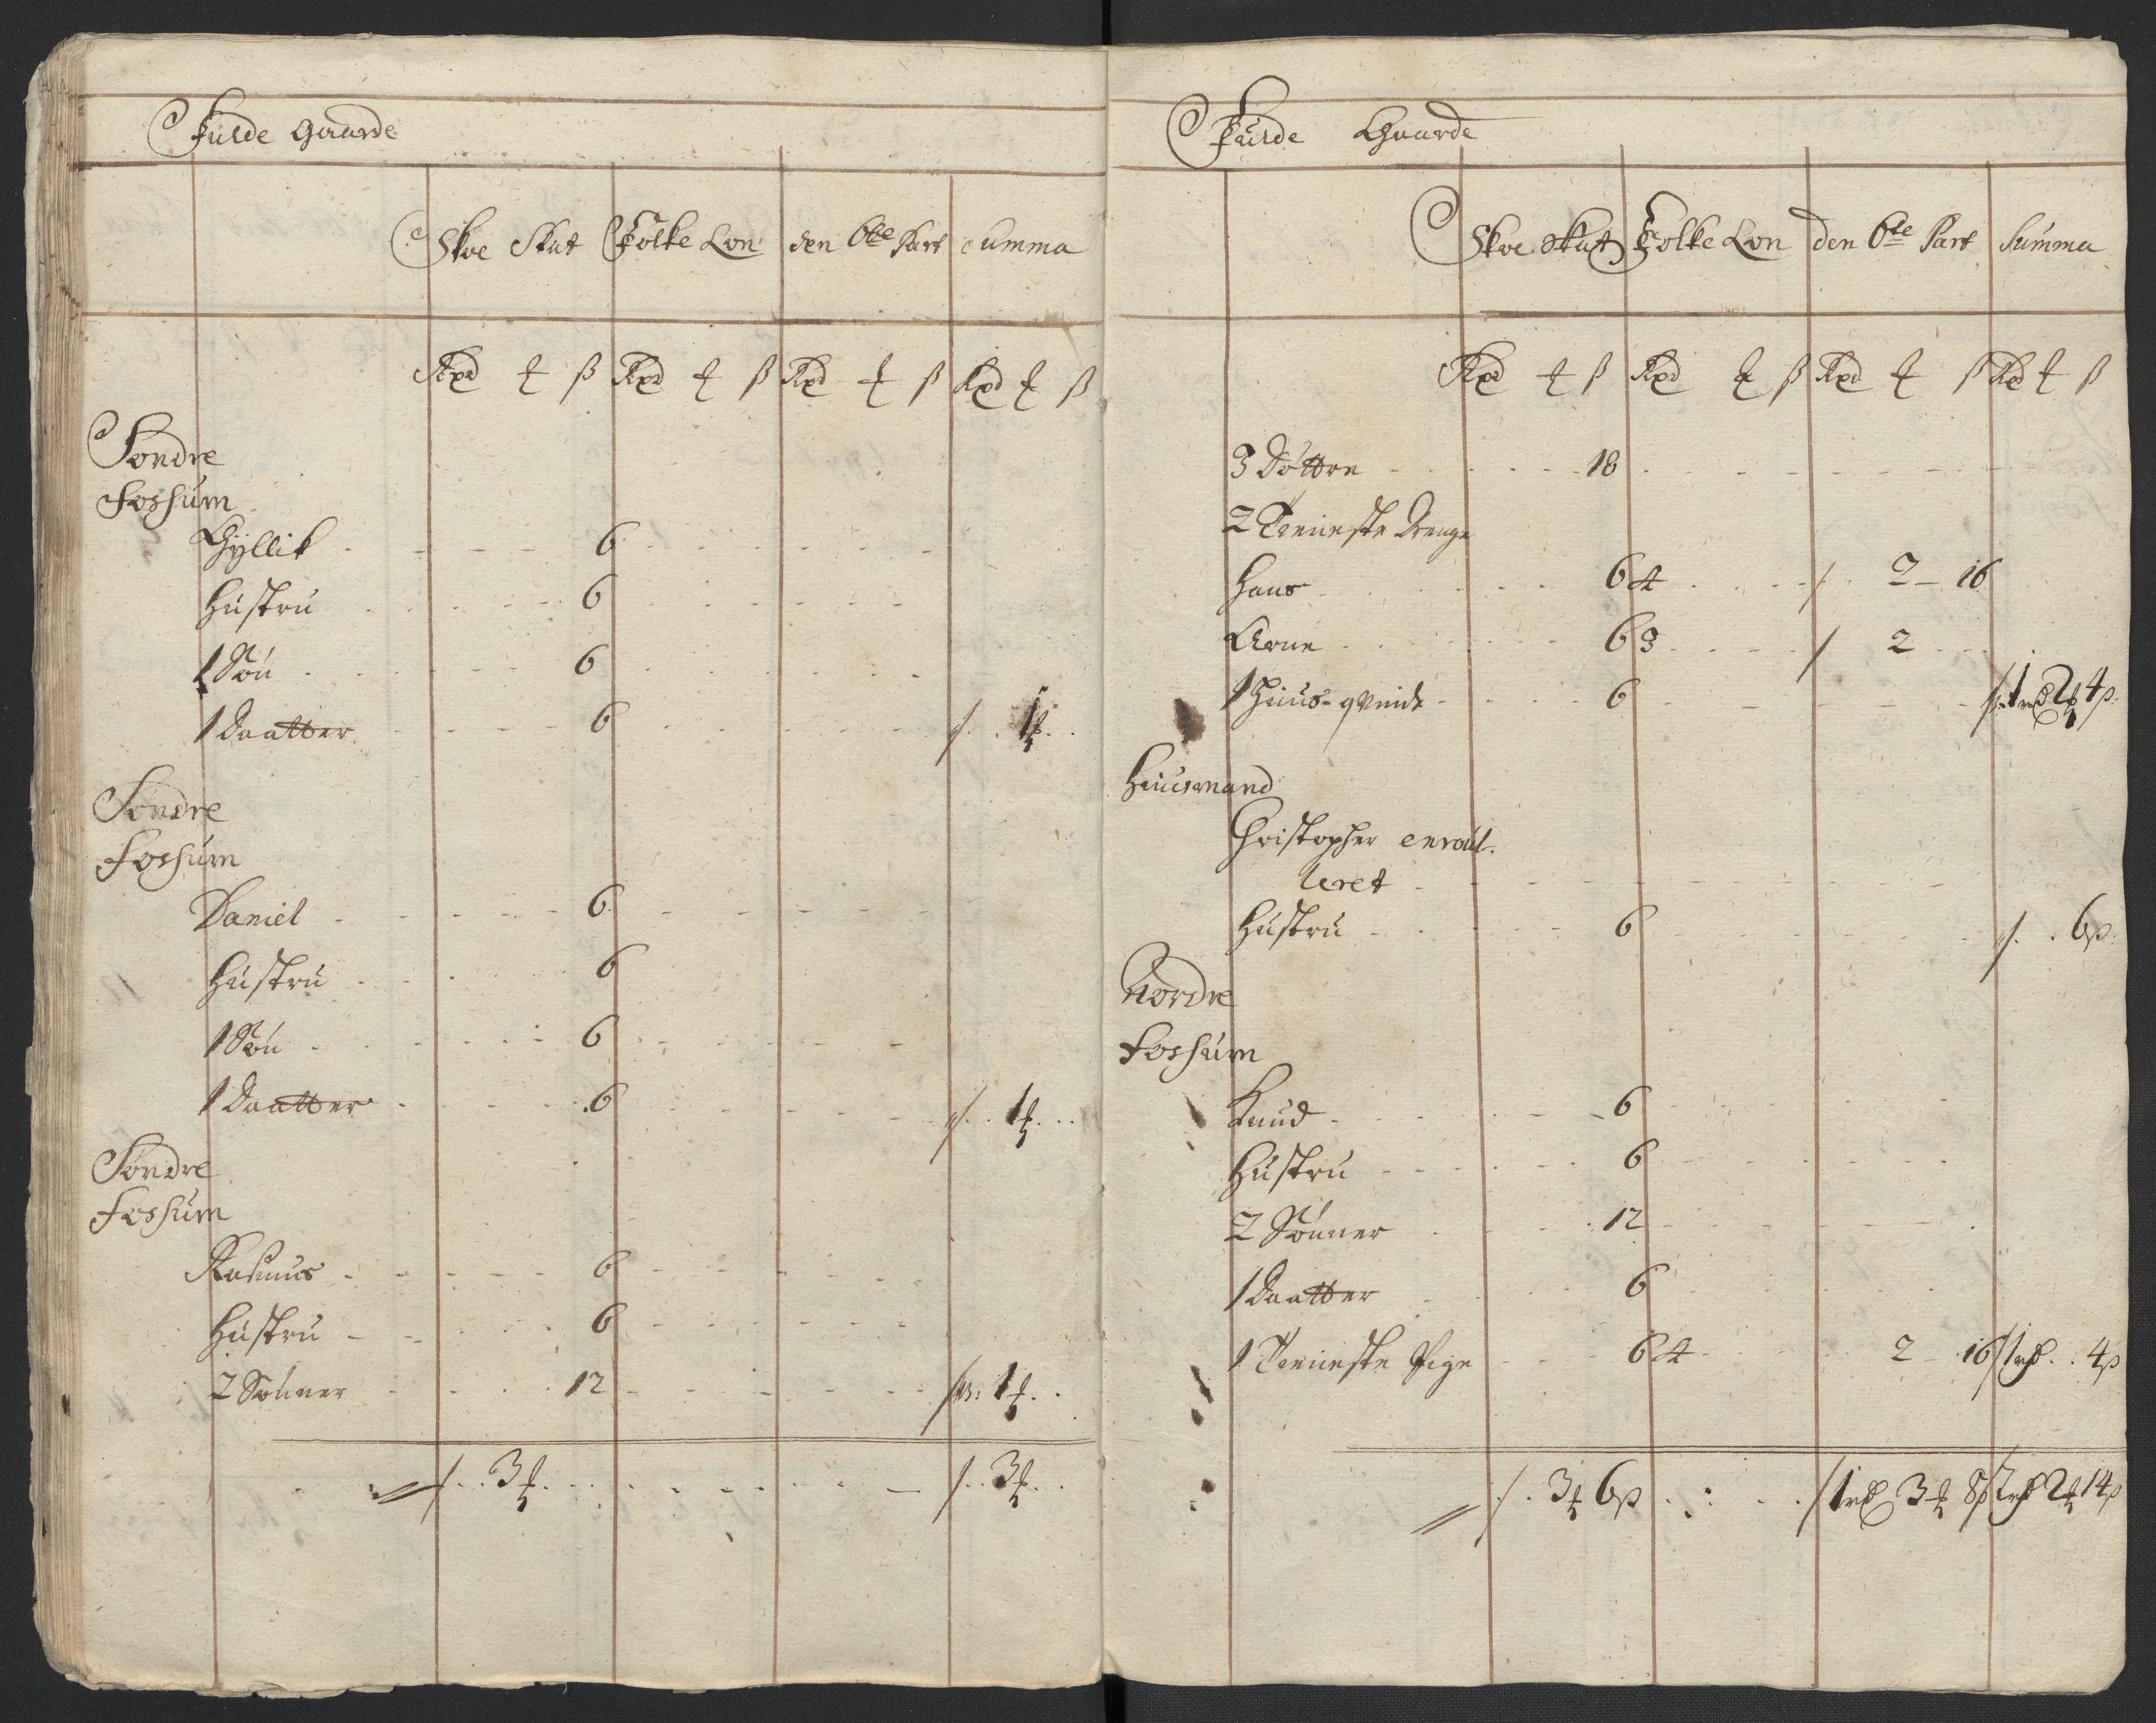 Fulde Gaarde
Skoe Skat Folke Lon den 6te Part Summa
Rxd ß Rxd ß Rxd ß Rxd ß
Sondre
Fossum
Gyllik 6
Hustru 6
1 Søn 6
1 Daatter 6 1
Sondre
Fossum
Daniel 6
Hustru 6
1 Søn 6
1 Daatter 6 1
Sondre
Fossum
Rasmus 6
Hustru 6
2 Sønner 12 1
3 3
Fulde Gaarde
Skoe Skat Folke Lon den 6te Part Summa
Rxd ß Rxd ß Rxd ß Rd ß
3 Døttre 18
2 Tieneste Drenge
Hans 6 4 2 16
Arne 6 3 2
1 Huus-qvinde 6 1 rd 2 4 ß
Huusmand
Christopher enroul-
leret
Hustru 6 6 ß
Nordre
Fossum
Knud 6
Hustru 6
2 Sønner 12
1 Daatter 6
1 Tieneste Pige 6 4 2 16 1 rd 4 ß
3 6 ß 1 rd 3 8 ß 2 rd 2 14 ß